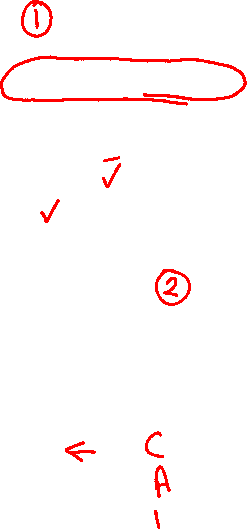 ①
✓
✓
②
← C
A
I